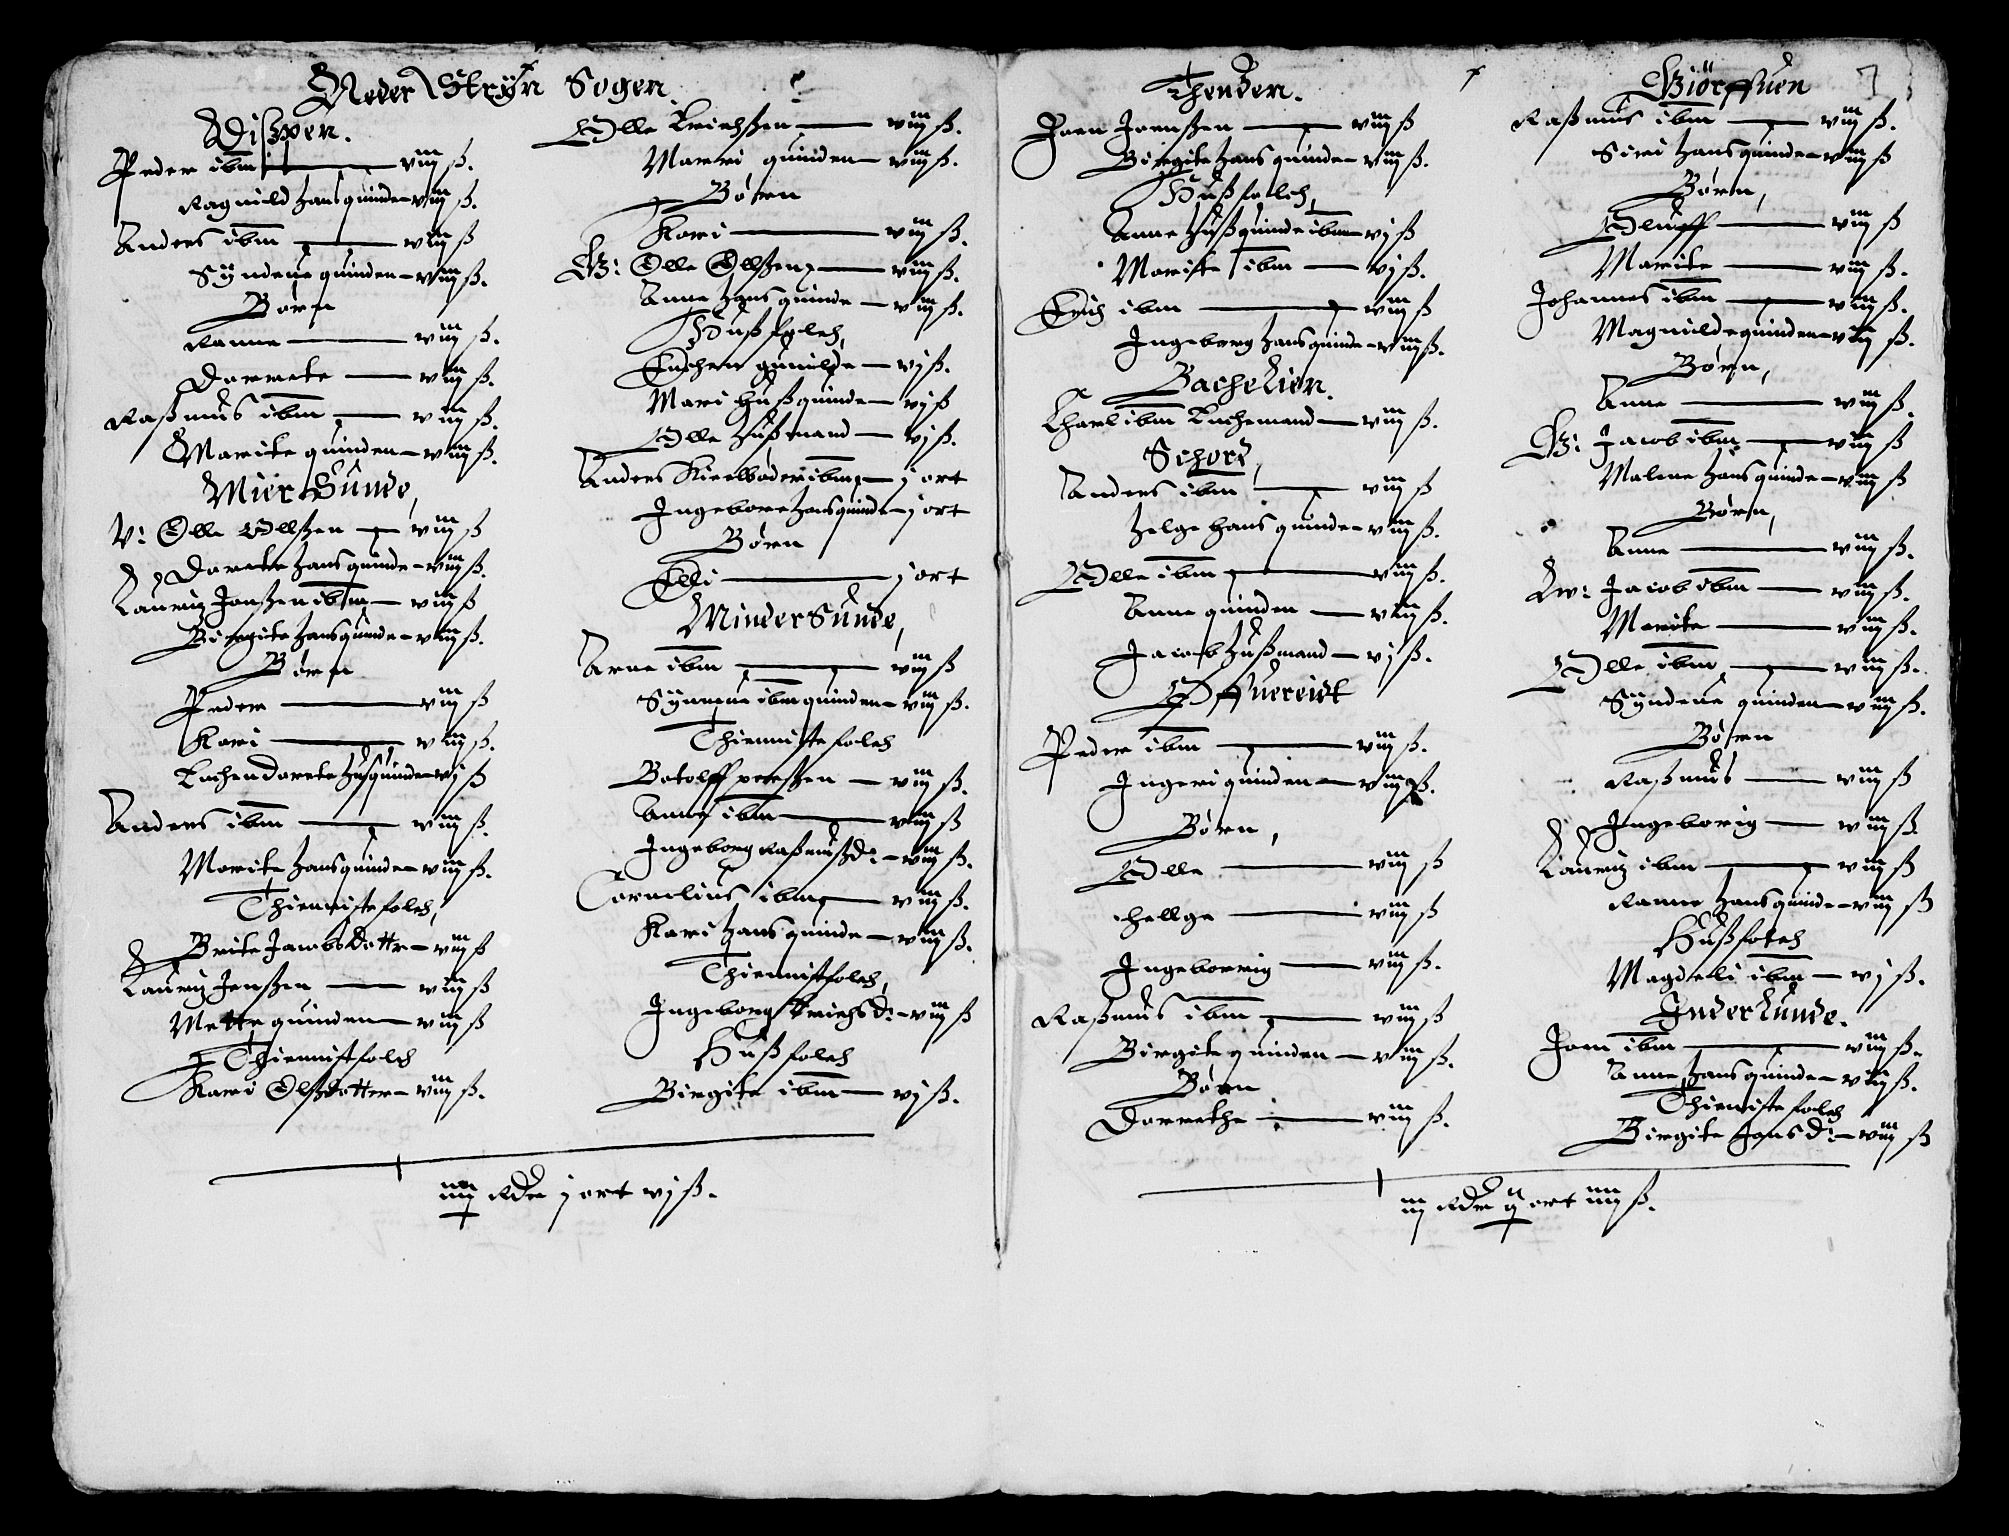 Neder Strÿn Sogen.
Disper.
Peder ibm — viij ß.
Ragnild hans quinde – viij ß.
Anders ibm — viij ß
Sÿndeue quinden – viij ß.
Børn
Ranne — viij ß.
Dorrete — viij ß.
Raßmus ibm — viij ß.
Marite quinden – viij ß.
Mier Sunde,
V: Olle Ollßen — viij ß
Dorrete hans quinde – viij ß.
Lauritz Jonßen ibm – viij ß
Birgite hans quinde – viij ß.
Børn
Peder — viij ß
Kari — viij ß.
Enchen Dorete husquinde – vj ß
Anders ibm — viij ß.
Marite hans quinde – viij ß.
Thienniste folch,
Brite Jacobs Dotter – viij ß
Lauritz Jenßen — viij ß
Mette quinden – viij ß
Thiennist folch
Kari Olßdotter – viij ß.
Olle Erichßen — viij ß.
Marri quinden – viij ß.
Børn
Kari — viij ß.
G: Olle Ollßen, — viij ß.
Anne hans quinde – viij ß.
Hußfolch,
Enchen gunilde – vj ß.
Mari Hußquinde – vj ß
Olle Hußmand – vj ß.
Anders ibm – j ort
Ingebore hans quinde – j ort
Børn
Elli — j ort
Minder Sunde,
Arne ibm — viij ß
Sÿnneue ibm quinden – viij ß.
Thienniste folch
Botolff perßen – viij ß.
Anne ibm — viij ß
Ingeborg Raßmußd: – viij ß.
Cornelius ibm – viij ß.
Kari hans quinde – viij ß.
Thiennistfolch,
Ingeborg Erichsd: – viij ß
Hußfolch
Birgite ibm – vj ß.
Rdr j ort vj ß.
Thenden.
Joen Joenßen — viij ß
Birgite hans quinde – viij ß.
Hußfolch,
Anne Hußquinde ibm – vj ß
Marite ibm — vj ß.
Erich ibm — viij ß
Ingeborg hans quinde – viij ß.
Bachelien.
Charl ibm Enchemand – viij ß.
Schore,
Anders ibm — viij ß
Helge hans quinde – viij ß.
Olle ibm — viij ß.
Anne quinden — viij ß.
Jacob Hußmand – vj ß.
Offuereidt
Peder ibm — viij ß.
Ingeri quinden – viij ß.
Børn,
Olle — viij ß
Hellge — viij ß
Ingeborrig — viij ß.
Raßmus ibm — viij ß
Birgite quinden – viij ß.
Børn
Dorrethe — viij ß.
Giørffuen
7
Raßmus ibm — viij ß.
Siri hans quinde – viij ß
Børn,
Oluff — viij ß
Marite — viij ß.
Johannes ibm — viij ß.
Magnilde quinden – viij ß.
Børn,
Anne — viij ß.
G: Jacob ibm — viij ß
Malene hans quinde – viij ß
Børn,
Anne — viij ß.
Jacob ibm — viij ß.
Marite — viij ß.
Olle ibm — viij ß.
Sÿndeue quinden – viij ß.
Børn
Raßmus — viij ß
Ingeborig — viij ß
Lauritz ibm — viij ß
Ranne hans quinde – viij ß
Hußfolch
Magdeli ibm – vj ß.
Inder Sunde.
Joen ibm — viij ß.
Anne hans quinde – viij ß.
Thienniste folch
Birgite Jonsd: – viij ß
Rdr ij ort iiij ß.